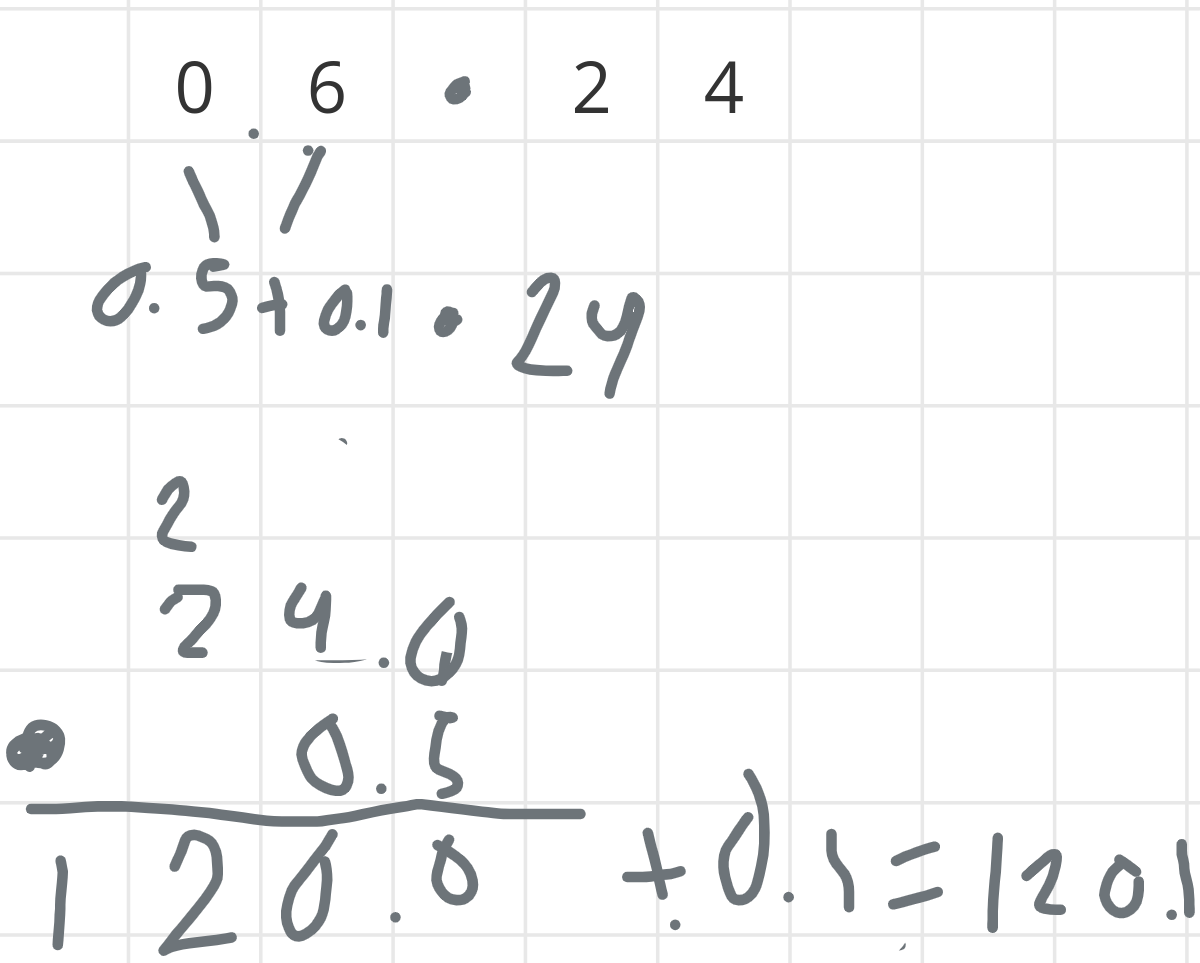 0.6 • 24
0.5+0.1 • 24
2
24.0
• 0.5
120.0 + 0.1 = 120.1